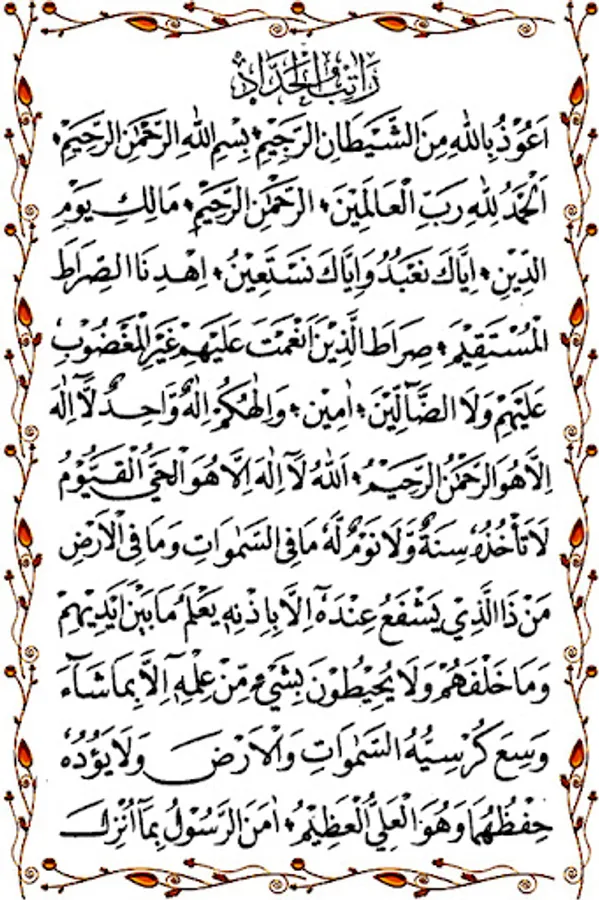 رَاتِبُ الْحَدَّادِ
اَعُوْذُ بِاللهِ مِنَ الشَّيْطَانِ الرَّجِيْمِ، بِسْمِ اللهِ الرَّحْمٰنِ الرَّحِيْمِ،
اَلْحَمْدُ لِلّٰهِ رَبِّ الْعَالَمِيْنَ، الرَّحْمٰنِ الرَّحِيْمِ، مَالِكِ يَوْمِ
الدِّيْنِ، اِيَّاكَ نَعْبُدُ وَاِيَّاكَ نَسْتَعِيْنُ، اِهْدِنَا الصِّرَاطَ
الْمُسْتَقِيْمَ، صِرَاطَ الَّذِيْنَ اَنْعَمْتَ عَلَيْهِمْ غَيْرِ الْمَغْضُوْبِ
عَلَيْهِمْ وَلَا الضَّآلِّيْنَ، اٰمِيْن، وَاِلٰهُكُمْ اِلٰهٌ وَّاحِدٌ لَّآ اِلٰهَ
اِلَّا هُوَ الرَّحْمٰنُ الرَّحِيْمُ، اَللهُ لَآ اِلٰهَ اِلَّا هُوَ الْحَيُّ الْقَيُّوْمُ
لَا تَأْخُذُهٗ سِنَةٌ وَّلَا نَوْمٌ لَّهٗ مَا فِى السَّمٰوَاتِ وَمَا فِى الْاَرْضِ
مَنْ ذَا الَّذِيْ يَشْفَعُ عِنْدَهٗٓ اِلَّا بِاِذْنِهٖ يَعْلَمُ مَا بَيْنَ اَيْدِيْهِمْ
وَمَا خَلْفَهُمْ وَلَا يُحِيْطُوْنَ بِشَيْءٍ مِّنْ عِلْمِهٖٓ اِلَّا بِمَا شَآءَ
وَسِعَ كُرْسِيُّهُ السَّمٰوَاتِ وَالْاَرْضَ وَلَا يَؤُدُهٗ
حِفْظُهُمَا وَهُوَ الْعَلِيُّ الْعَظِيْمُ، اٰمَنَ الرَّسُوْلُ بِمَآ اُنْزِلَ